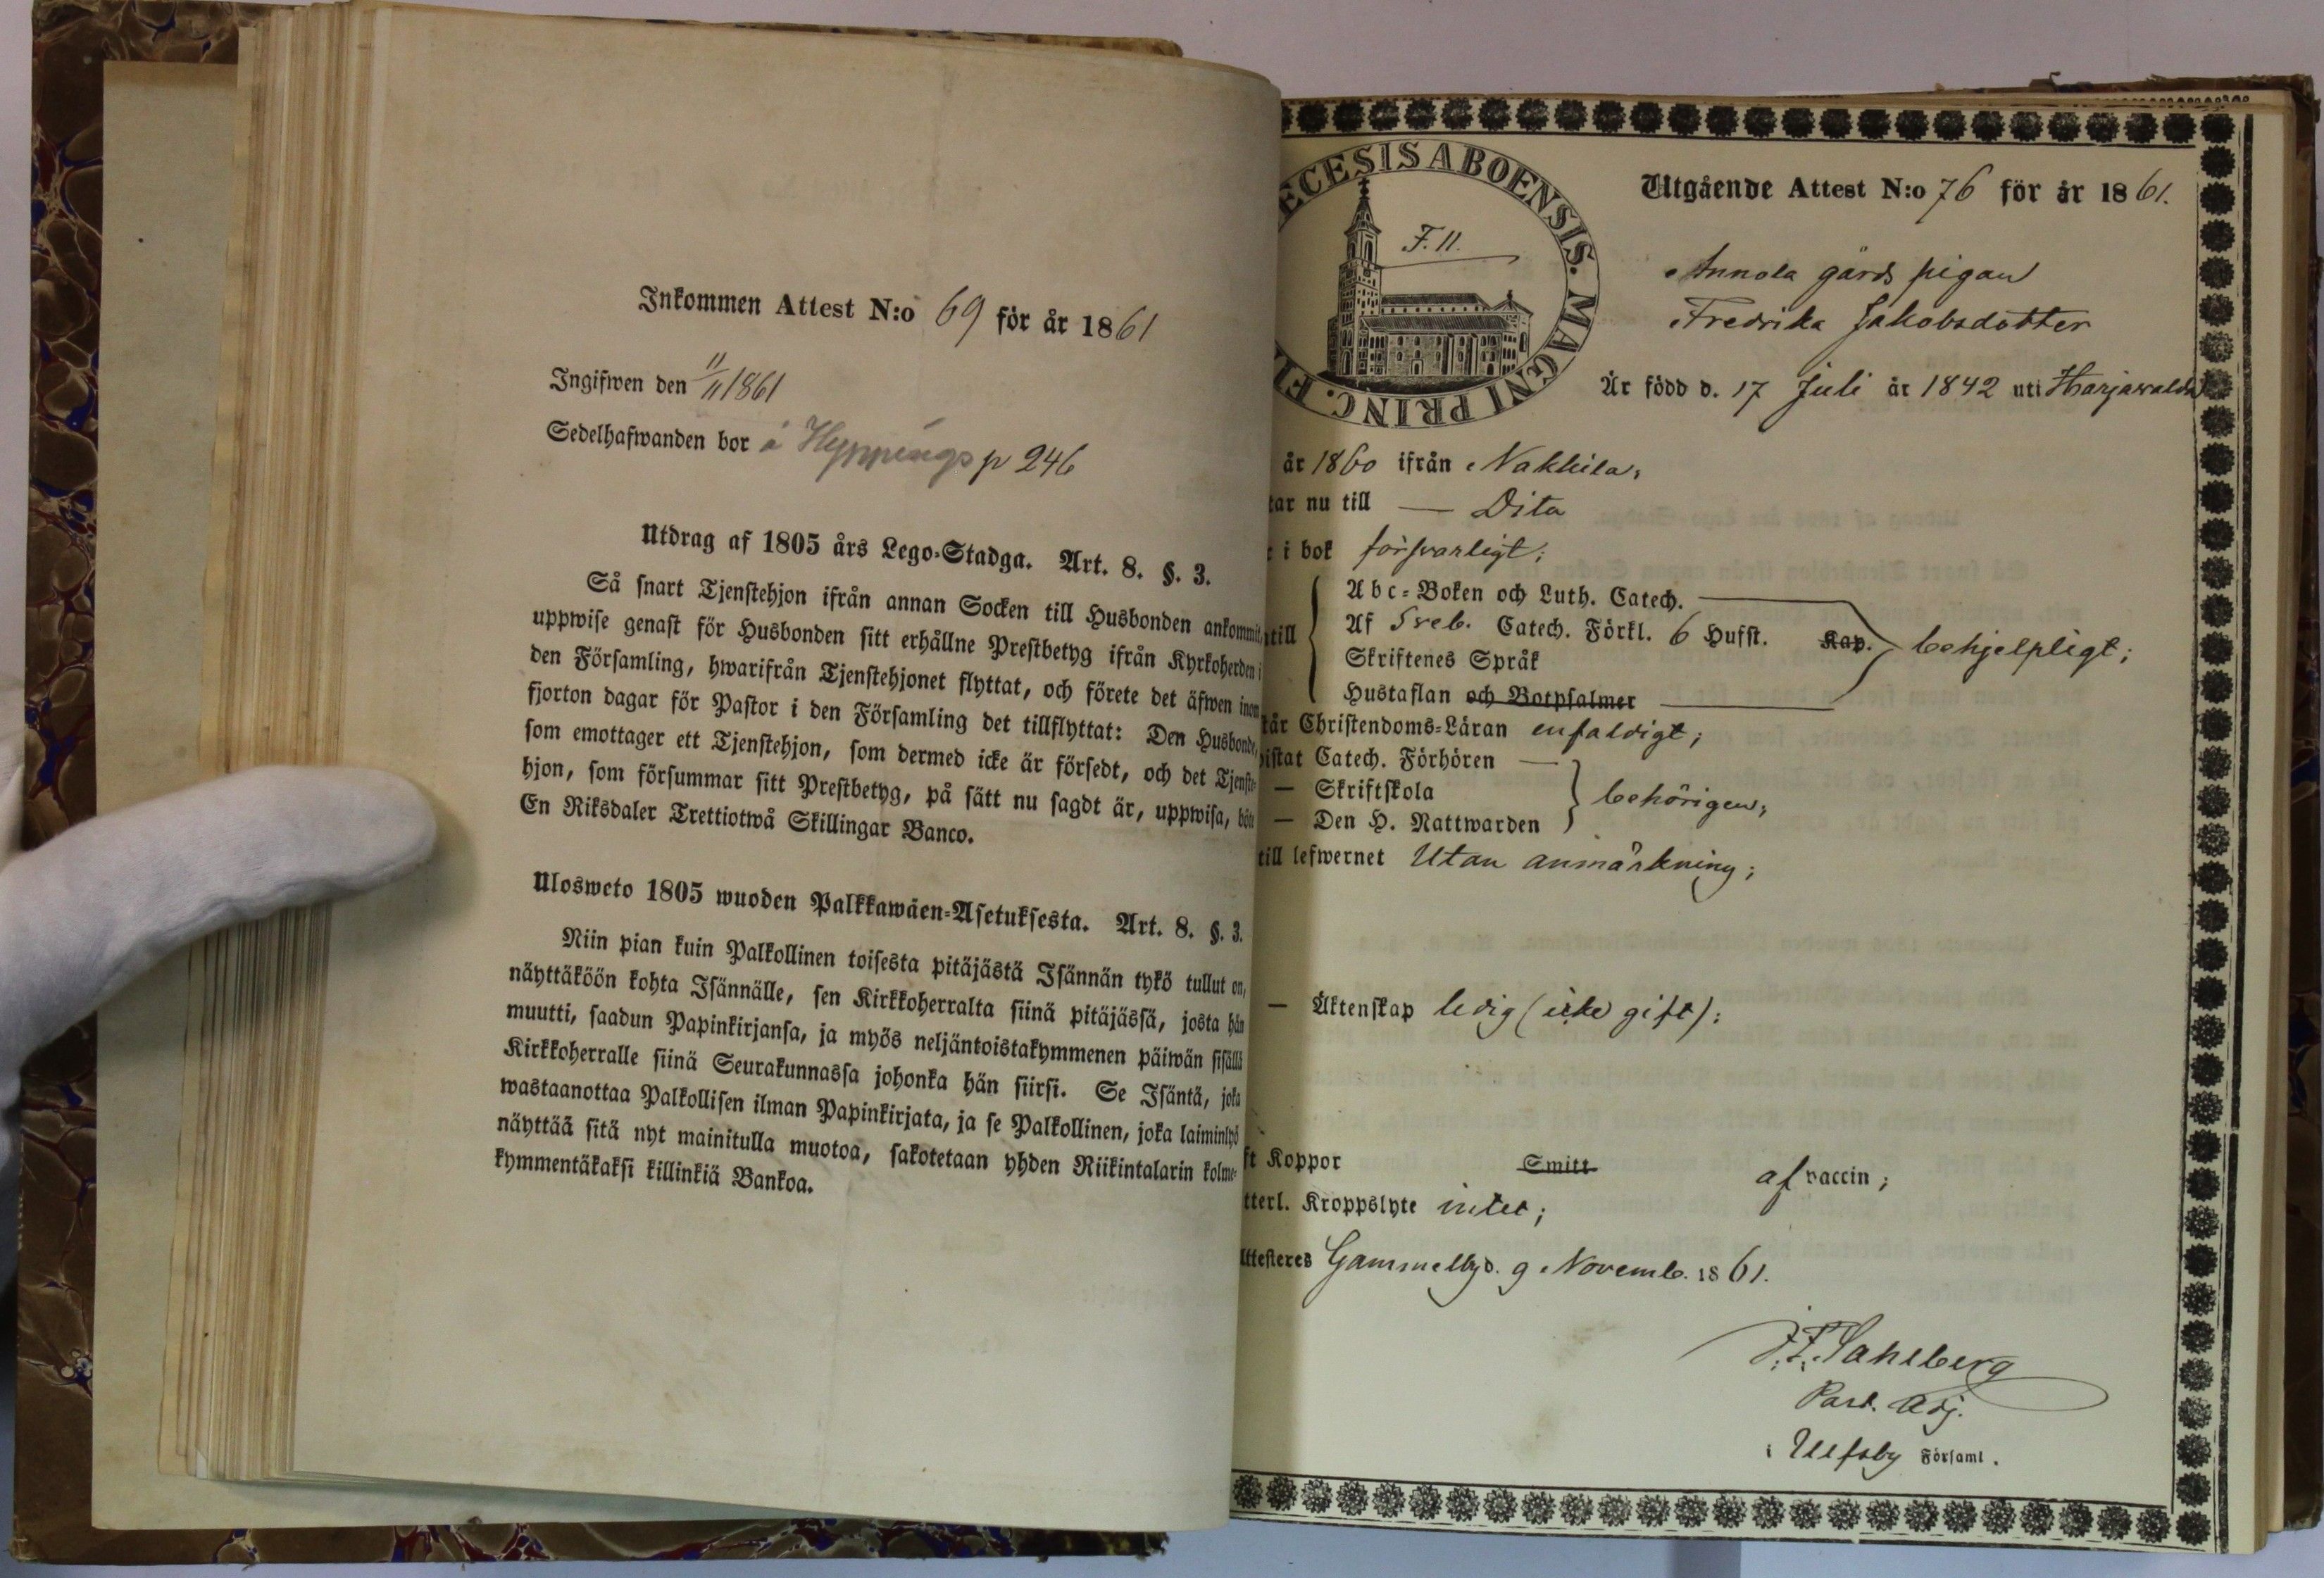 Inkommen Attest N:o 69 för år 1861
Ingifwen den 11/11 1861
Sedelhafwanden bor å Hyppings p 246
Utdrag af 1805 års Lego-Stadga. Art. 8. §. 3.
Så snart Tjenstehjon ifrån annan Socken till Husbonden ankommit,
uppwise genast för Husbonden sitt erhållne Prestbetyg ifrån Kyrkoherden i
den Församling, hwarifrån Tjenstehjonet flyttat, och förete det äfwen inom
fjorton dagar för Pastor i den Församling det tillflyttat: Den Husbonde,
som emottager ett Tjenstehjon, som dermed icke är försedt, och det Tjenste-
hjon, som försummar sitt Prestbetyg, på sätt nu sagdt är, uppwisa, böte
En Riksdaler Trettiotwå Skillingar Banco.
Ulosweto 1805 wuoden Palkkawäen-Asetuksesta. Art. 8. §. 3.
Niin pian kuin Palkollinen toisesta pitäjästä Isännän tykö tullut on,
näyttäköön kohta Isännälle, sen Kirkkoherralta siinä pitäjässä, josta hän
muutti, saadun Papinkirjansa, ja myös neljäntoistakymmenen päiwän sisällä
Kirkkoherralle siinä Seurakunnassa johonka hän siirsi. Se Isäntä, joka
wastaanottaa Palkollisen ilman Papinkirjata, ja se Palkollinen, joka laiminlyö
näyttää sitä nyt mainitulla muotoa, sakotetaan yhden Riikintalarin kolme-
kymmentäkaksi killinkiä Bankoa.
ECESIS ABOENSIS. MAGNI PRINC. FI
F. 11.
Utgående Attest N:o 76 för år 1861.
Annola gårds pigan
Fredrika Jakobsdotter
Är född d. 17 Juli år 1842 uti Harjawalda
år 1860 ifrån Nakkila,
tar nu till — Dito
t i bok försvarligt;
till
Abc-Boken och Luth. Catech.
Af Sveb. Catech. Förkl. 6 Hufst. Kap. behjelpligt;
Skriftenes Språk
Hustaflan och Botpsalmer
tår Christendoms-Läran enfaldigt;
istat Catech. Förhören —
— Skriftskola behörigen;
— Den H. Nattwarden
till lefwernet Utan anmärkning;
— Äktenskap ledig (icke gift);
ft Koppor Smitt af vaccin;
tterl. Kroppslyte intet;
Attesteres Gammelby d. 9 Novemb. 1861.
J. F. Sahlberg
Past. Adj.
i Ulfsby Församl.